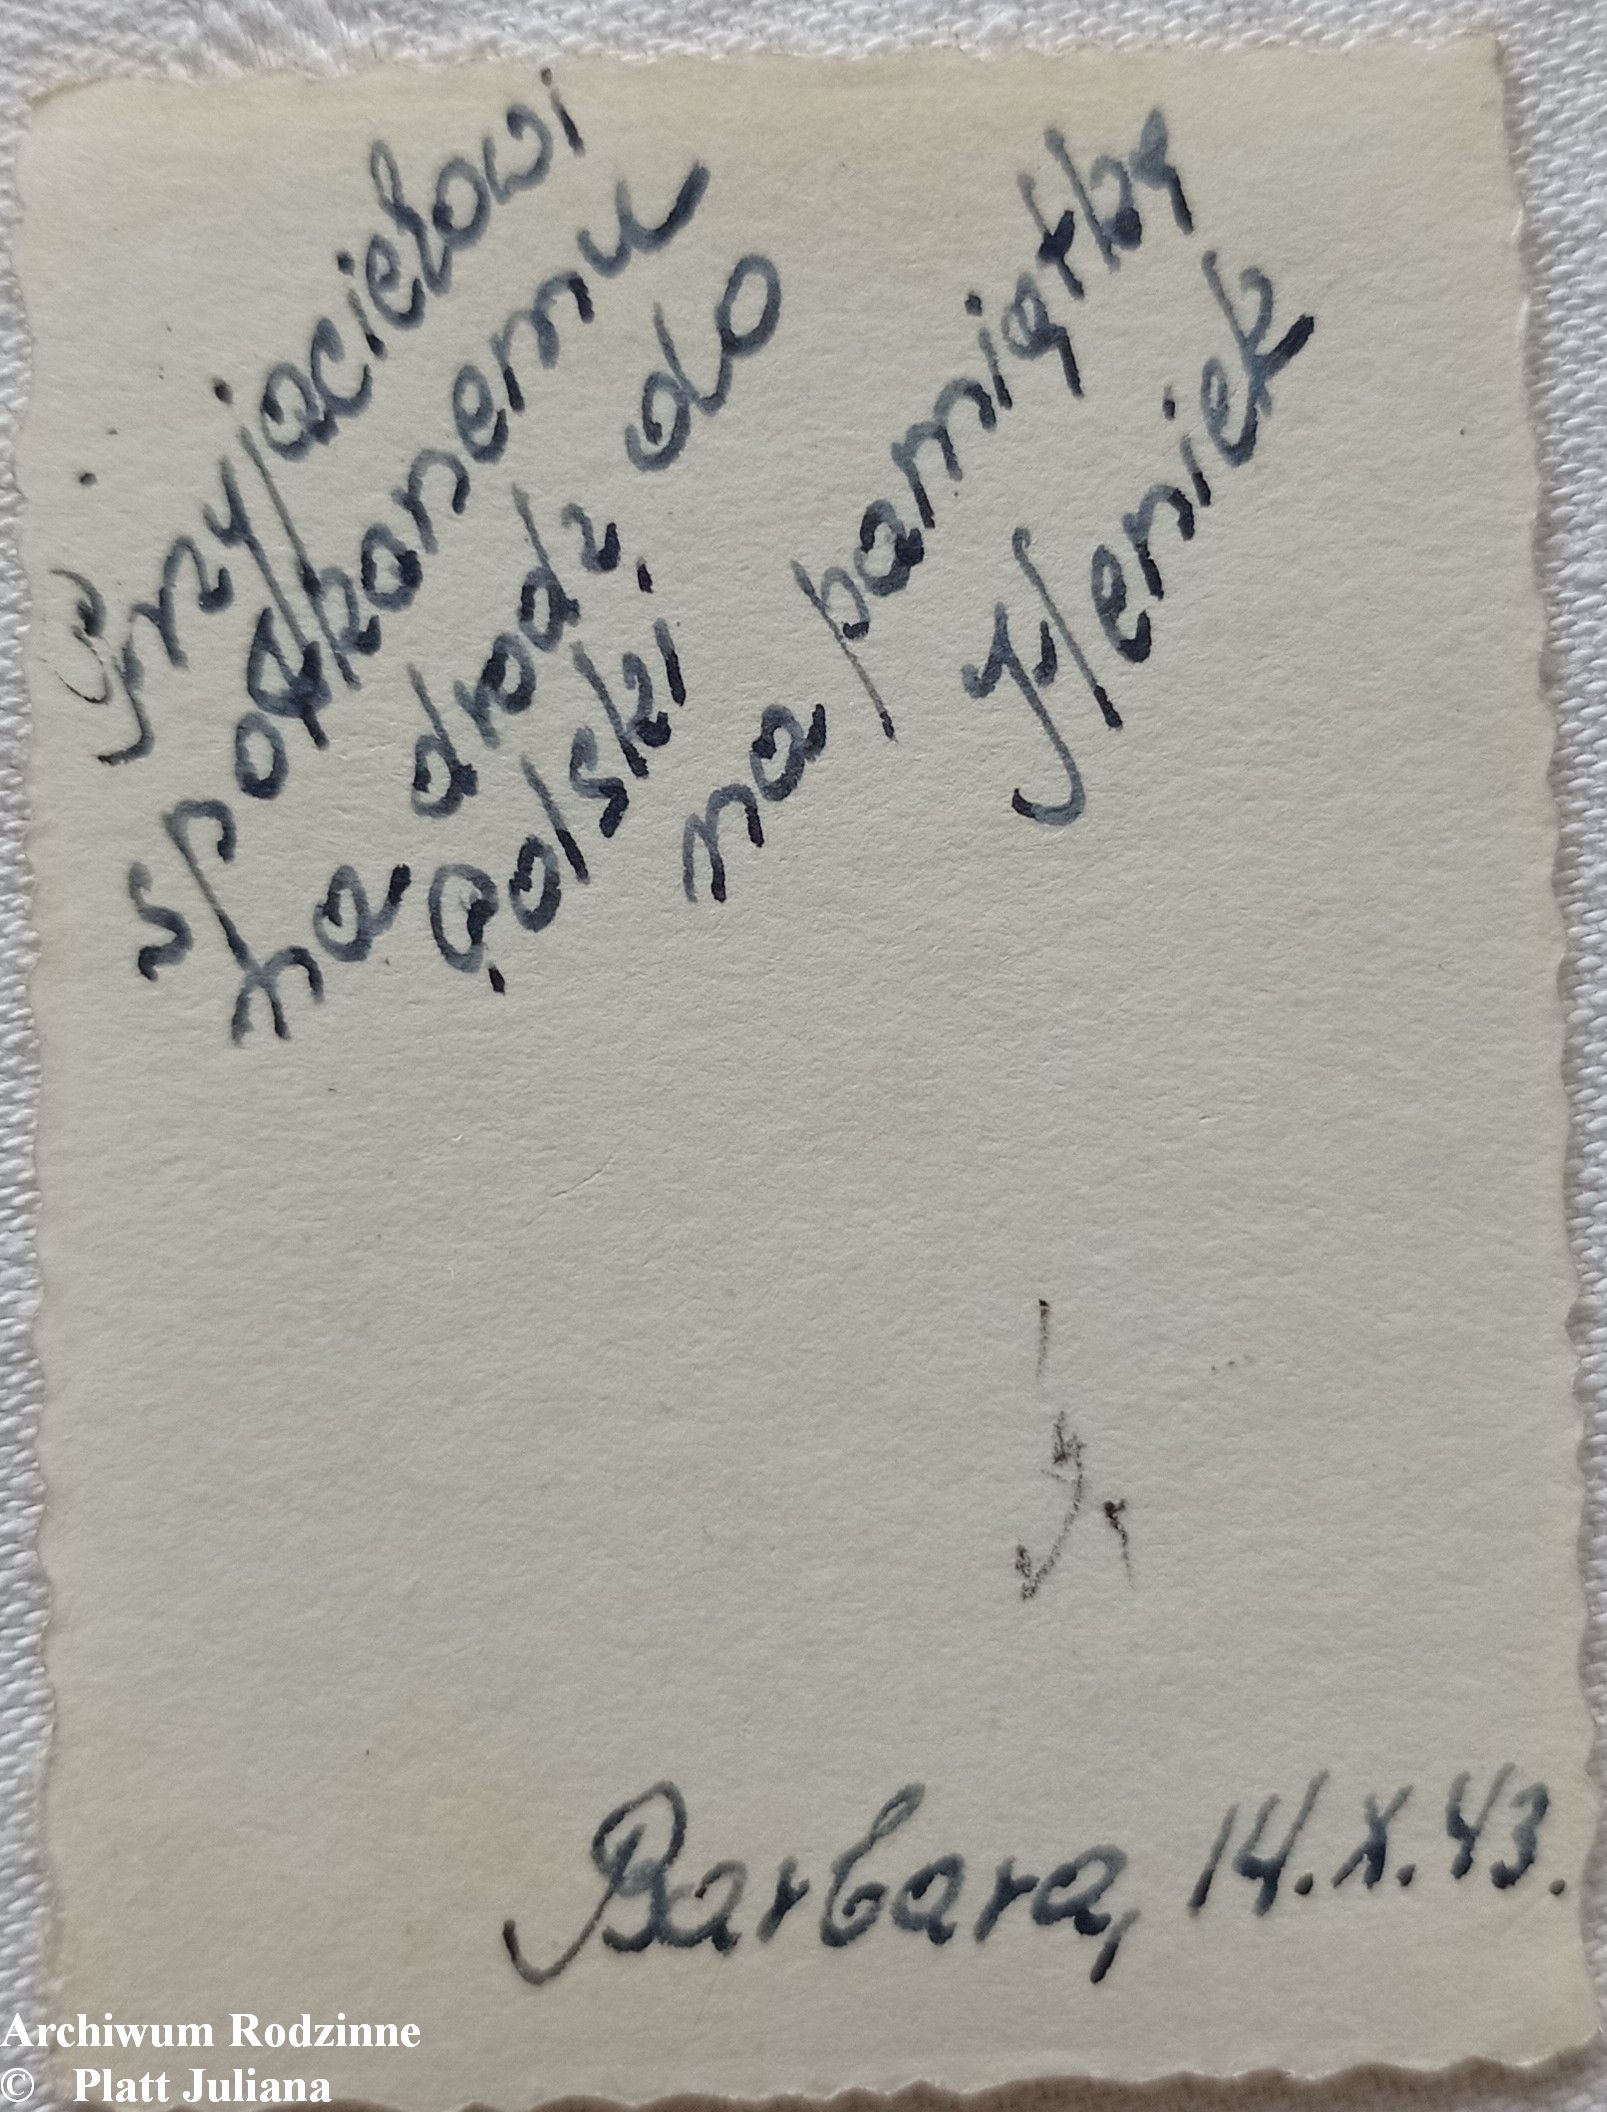 Przyjacielowi
spotkanemu
na drodz. do
Polski
na pamiątkę
Heniek
Barbara, 14.X.43.
Archiwum Rodzinne
© Platt Juliana